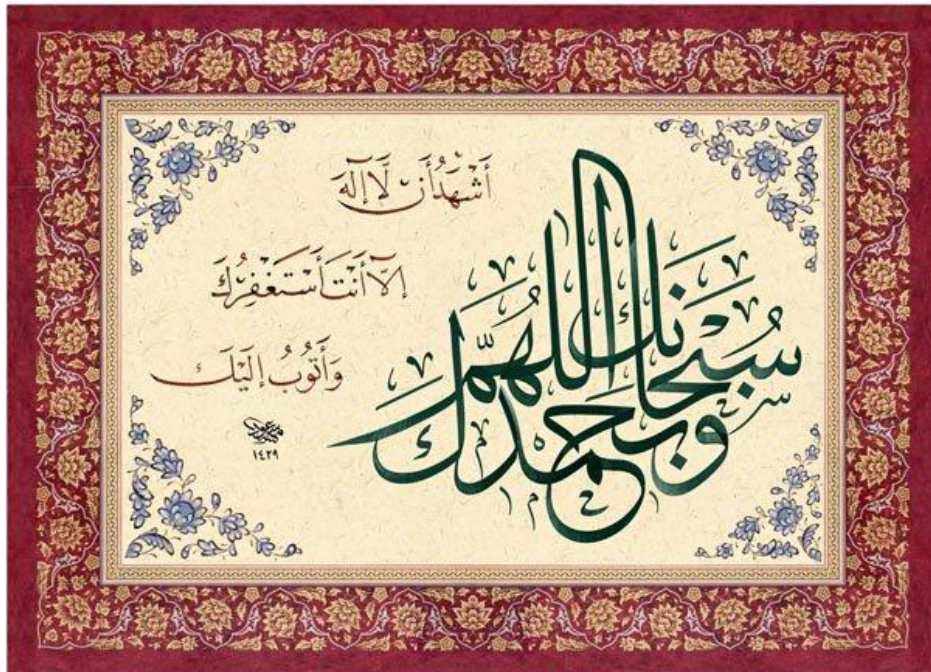 سُبْحَانَكَ اللَّهُمَّ
وَبِحَمْدِكَ
أَشْهَدُ أَن لَّا إِلٰهَ
إِلَّا أَنْتَ أَسْتَغْفِرُكَ
وَأَتُوبُ إِلَيْكَ
١٤٢٩